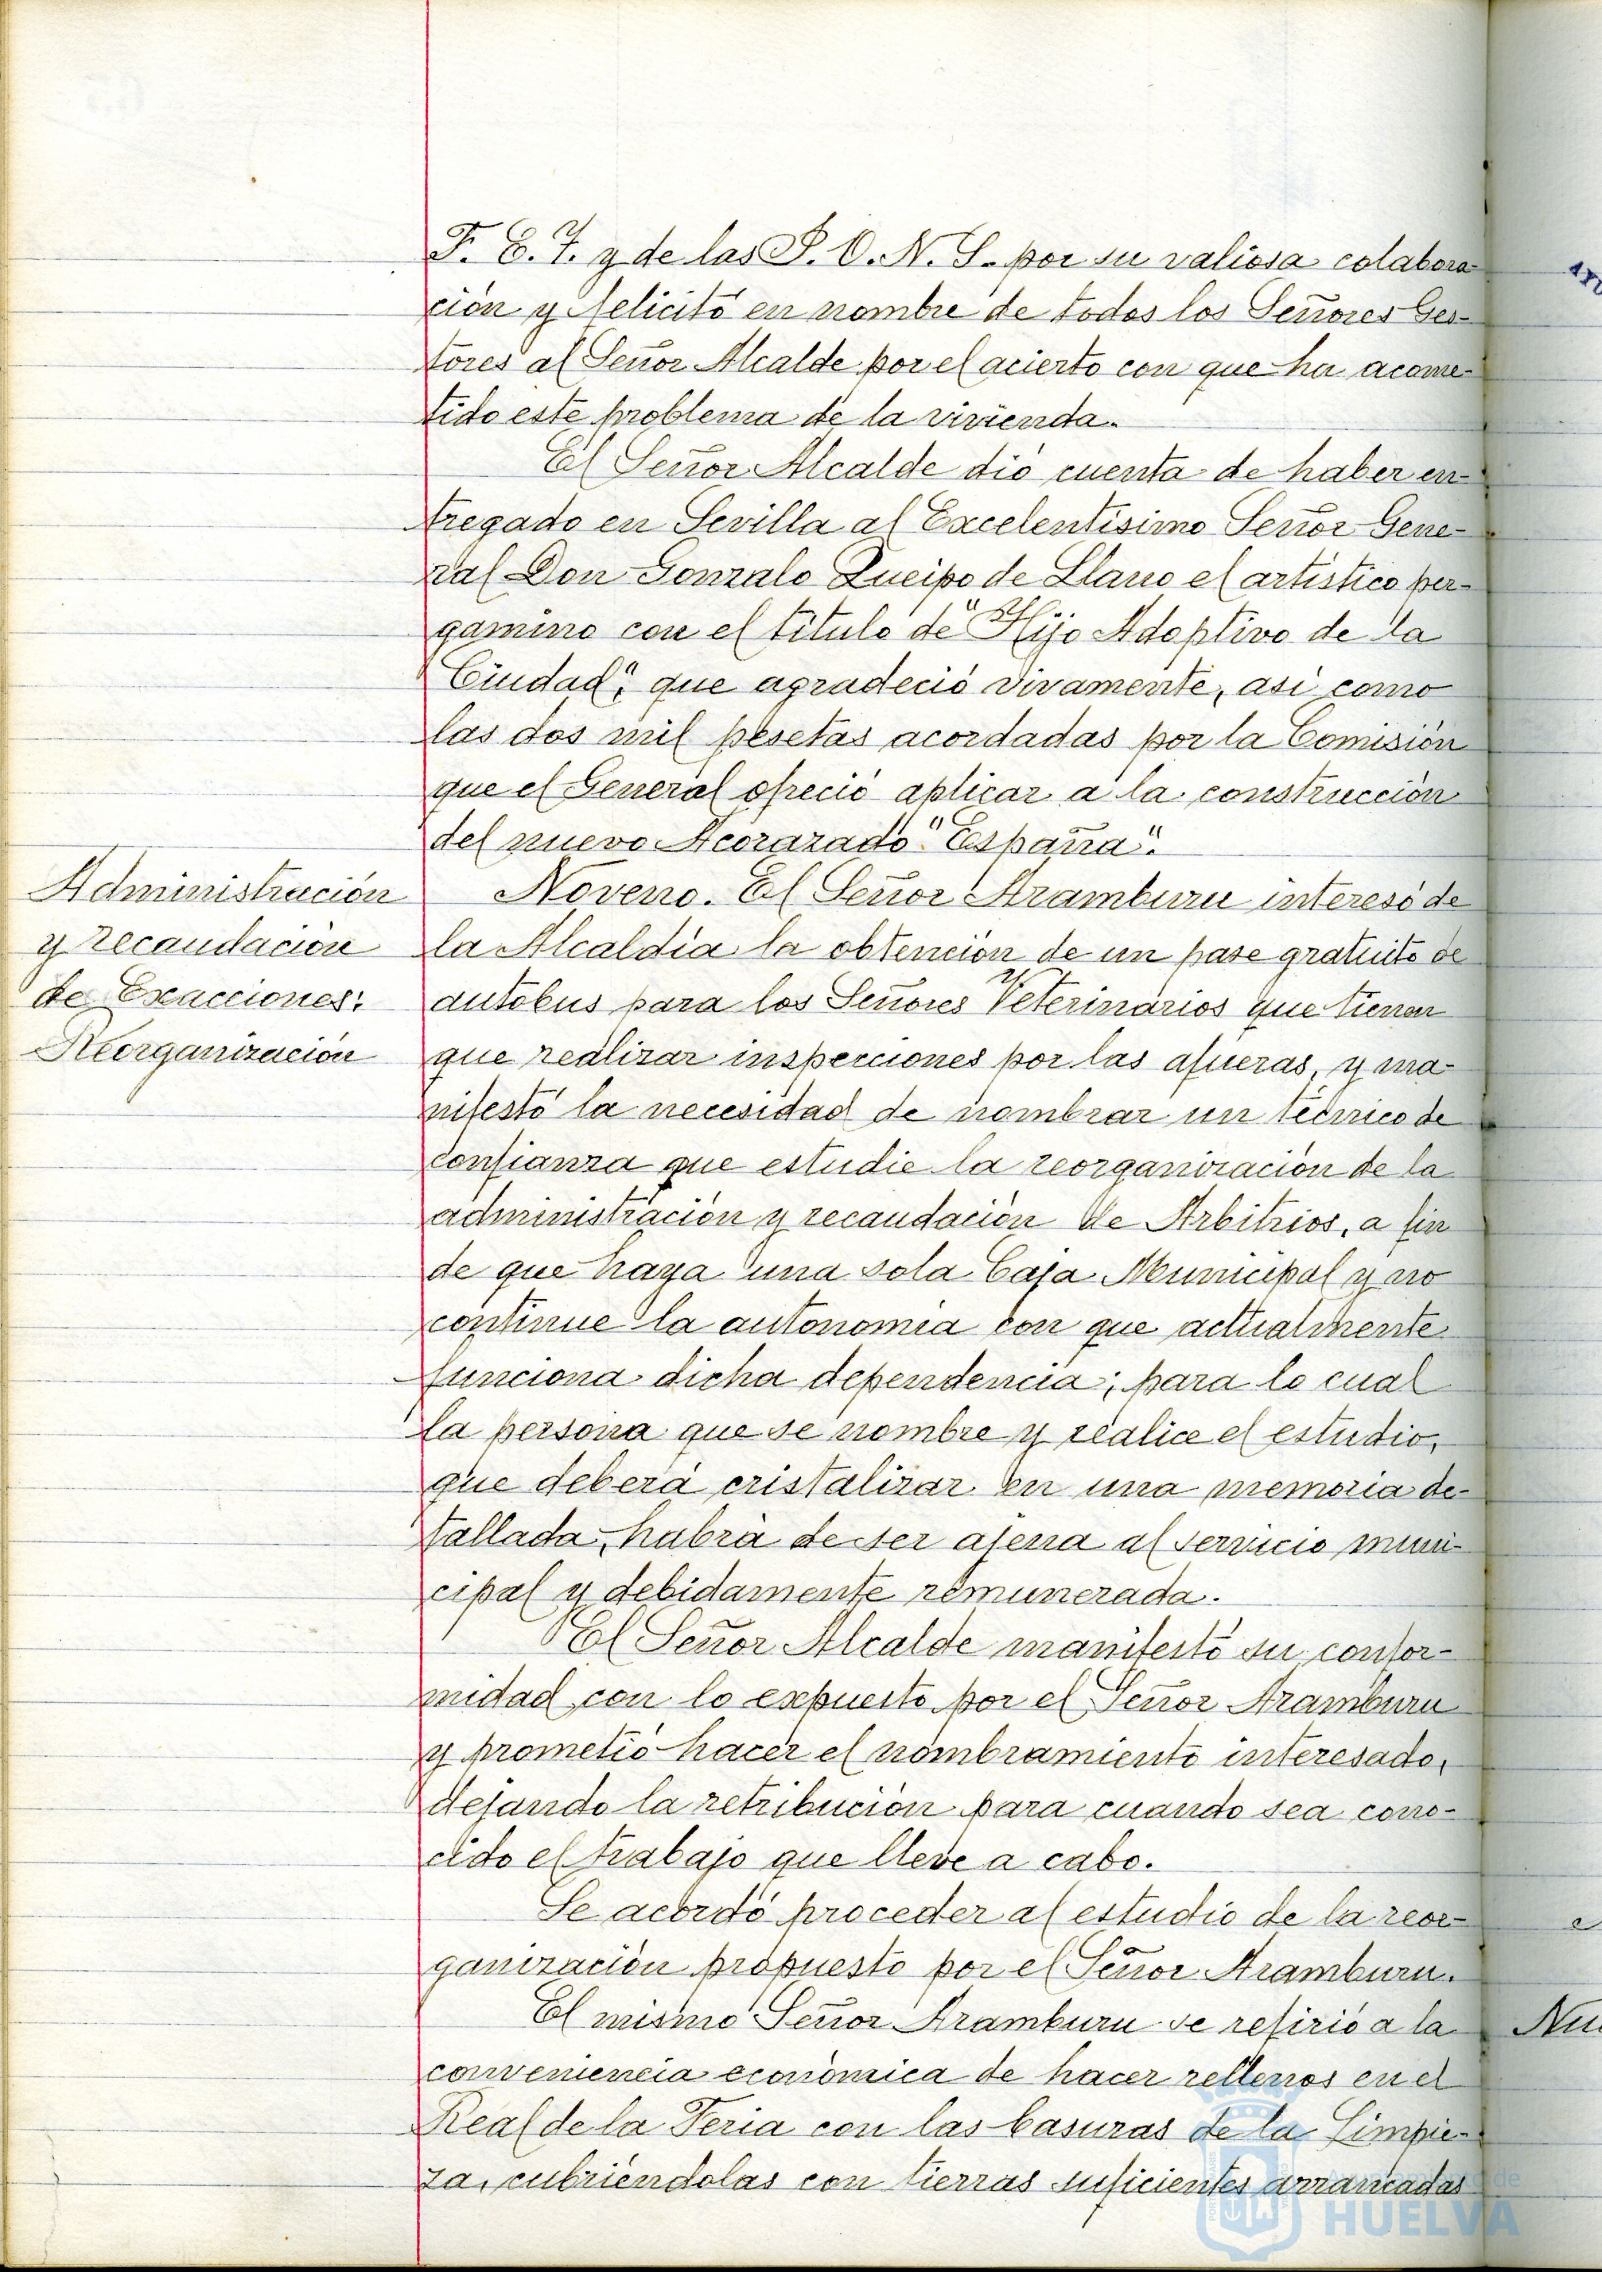 F. E. T. y de las J. O. N. S. por su valiosa colabora
ción y felicitó en nombre de todos los Señores Ges-
tores al Señor Alcalde por el acierto con que ha acome-
tido este problema de la vivienda.
El Señor Alcalde dió cuenta de haber en-
tregado en Sevilla al Excelentísimo Señor Gene-
ral Don Gonzalo Queipo de Llano el artístico per-
gamino con el título de "Hijo Adoptivo de la
Ciudad", que agradeció vivamente, asi como
las dos mil pesetas acordadas por la Comisión
que el General ofreció aplicar a la construcción
del nuevo Acorazado "España".
Administración
y recaudación
de Exacciones:
Reorganización
Noveno. El Señor Aramburu interesó de
la Alcaldía la obtención de un pase gratuito de
autobus para los Señores Veterinarios que tienen
que realizar inspecciones por las afueras, y ma-
nifestó la necesidad de nombrar un técnico de
confianza que estudie la reorganización de la
administración y recaudación de Arbitrios, a fin
de que haya una sola Caja Municipal y no
continue la autonomía con que actualmente
funciona dicha dependencia; para lo cual
la persona que se nombre y realice el estudio,
que deberá cristalizar en una memoria de-
tallada, habrá de ser ajena al servicio muni-
cipal y debidamente remunerada.
El Señor Alcalde manifestó su confor-
midad con lo expuesto por el Señor Aramburu
y prometió hacer el nombramiento interesado,
dejando la retribución para cuando sea cono-
cido el trabajo que lleve a cabo.
Se acordó proceder al estudio de la reor-
ganización propuesto por el Señor Aramburu.
El mismo Señor Aramburu se refirió a la
conveniencia económica de hacer rellenos en el
Real de la Feria con las basuras de la Limpie-
za, cubriéndolas con tierras suficientes arrancadas
Nu
Ayuntamiento de
HUELVA